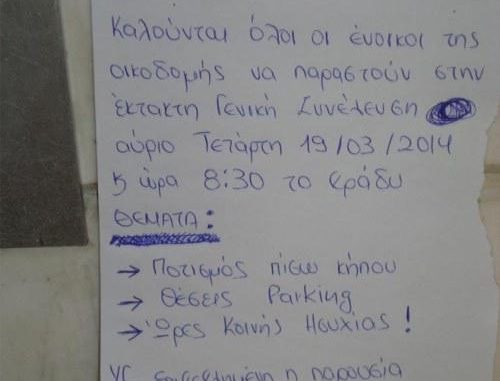 Καλούνται όλοι οι ένοικοι της
οικοδομής να παραστούν στην
έκτακτη Γενική Συνέλευση
αύριο Τετάρτη 19/03/2014
ώρα 8:30 το βράδυ
ΘΕΜΑΤΑ:
→ Ποτισμός πίσω κήπου
→ Θέσεις Parking
→ Ώρες Κοινής Ησυχίας!
η παρουσία